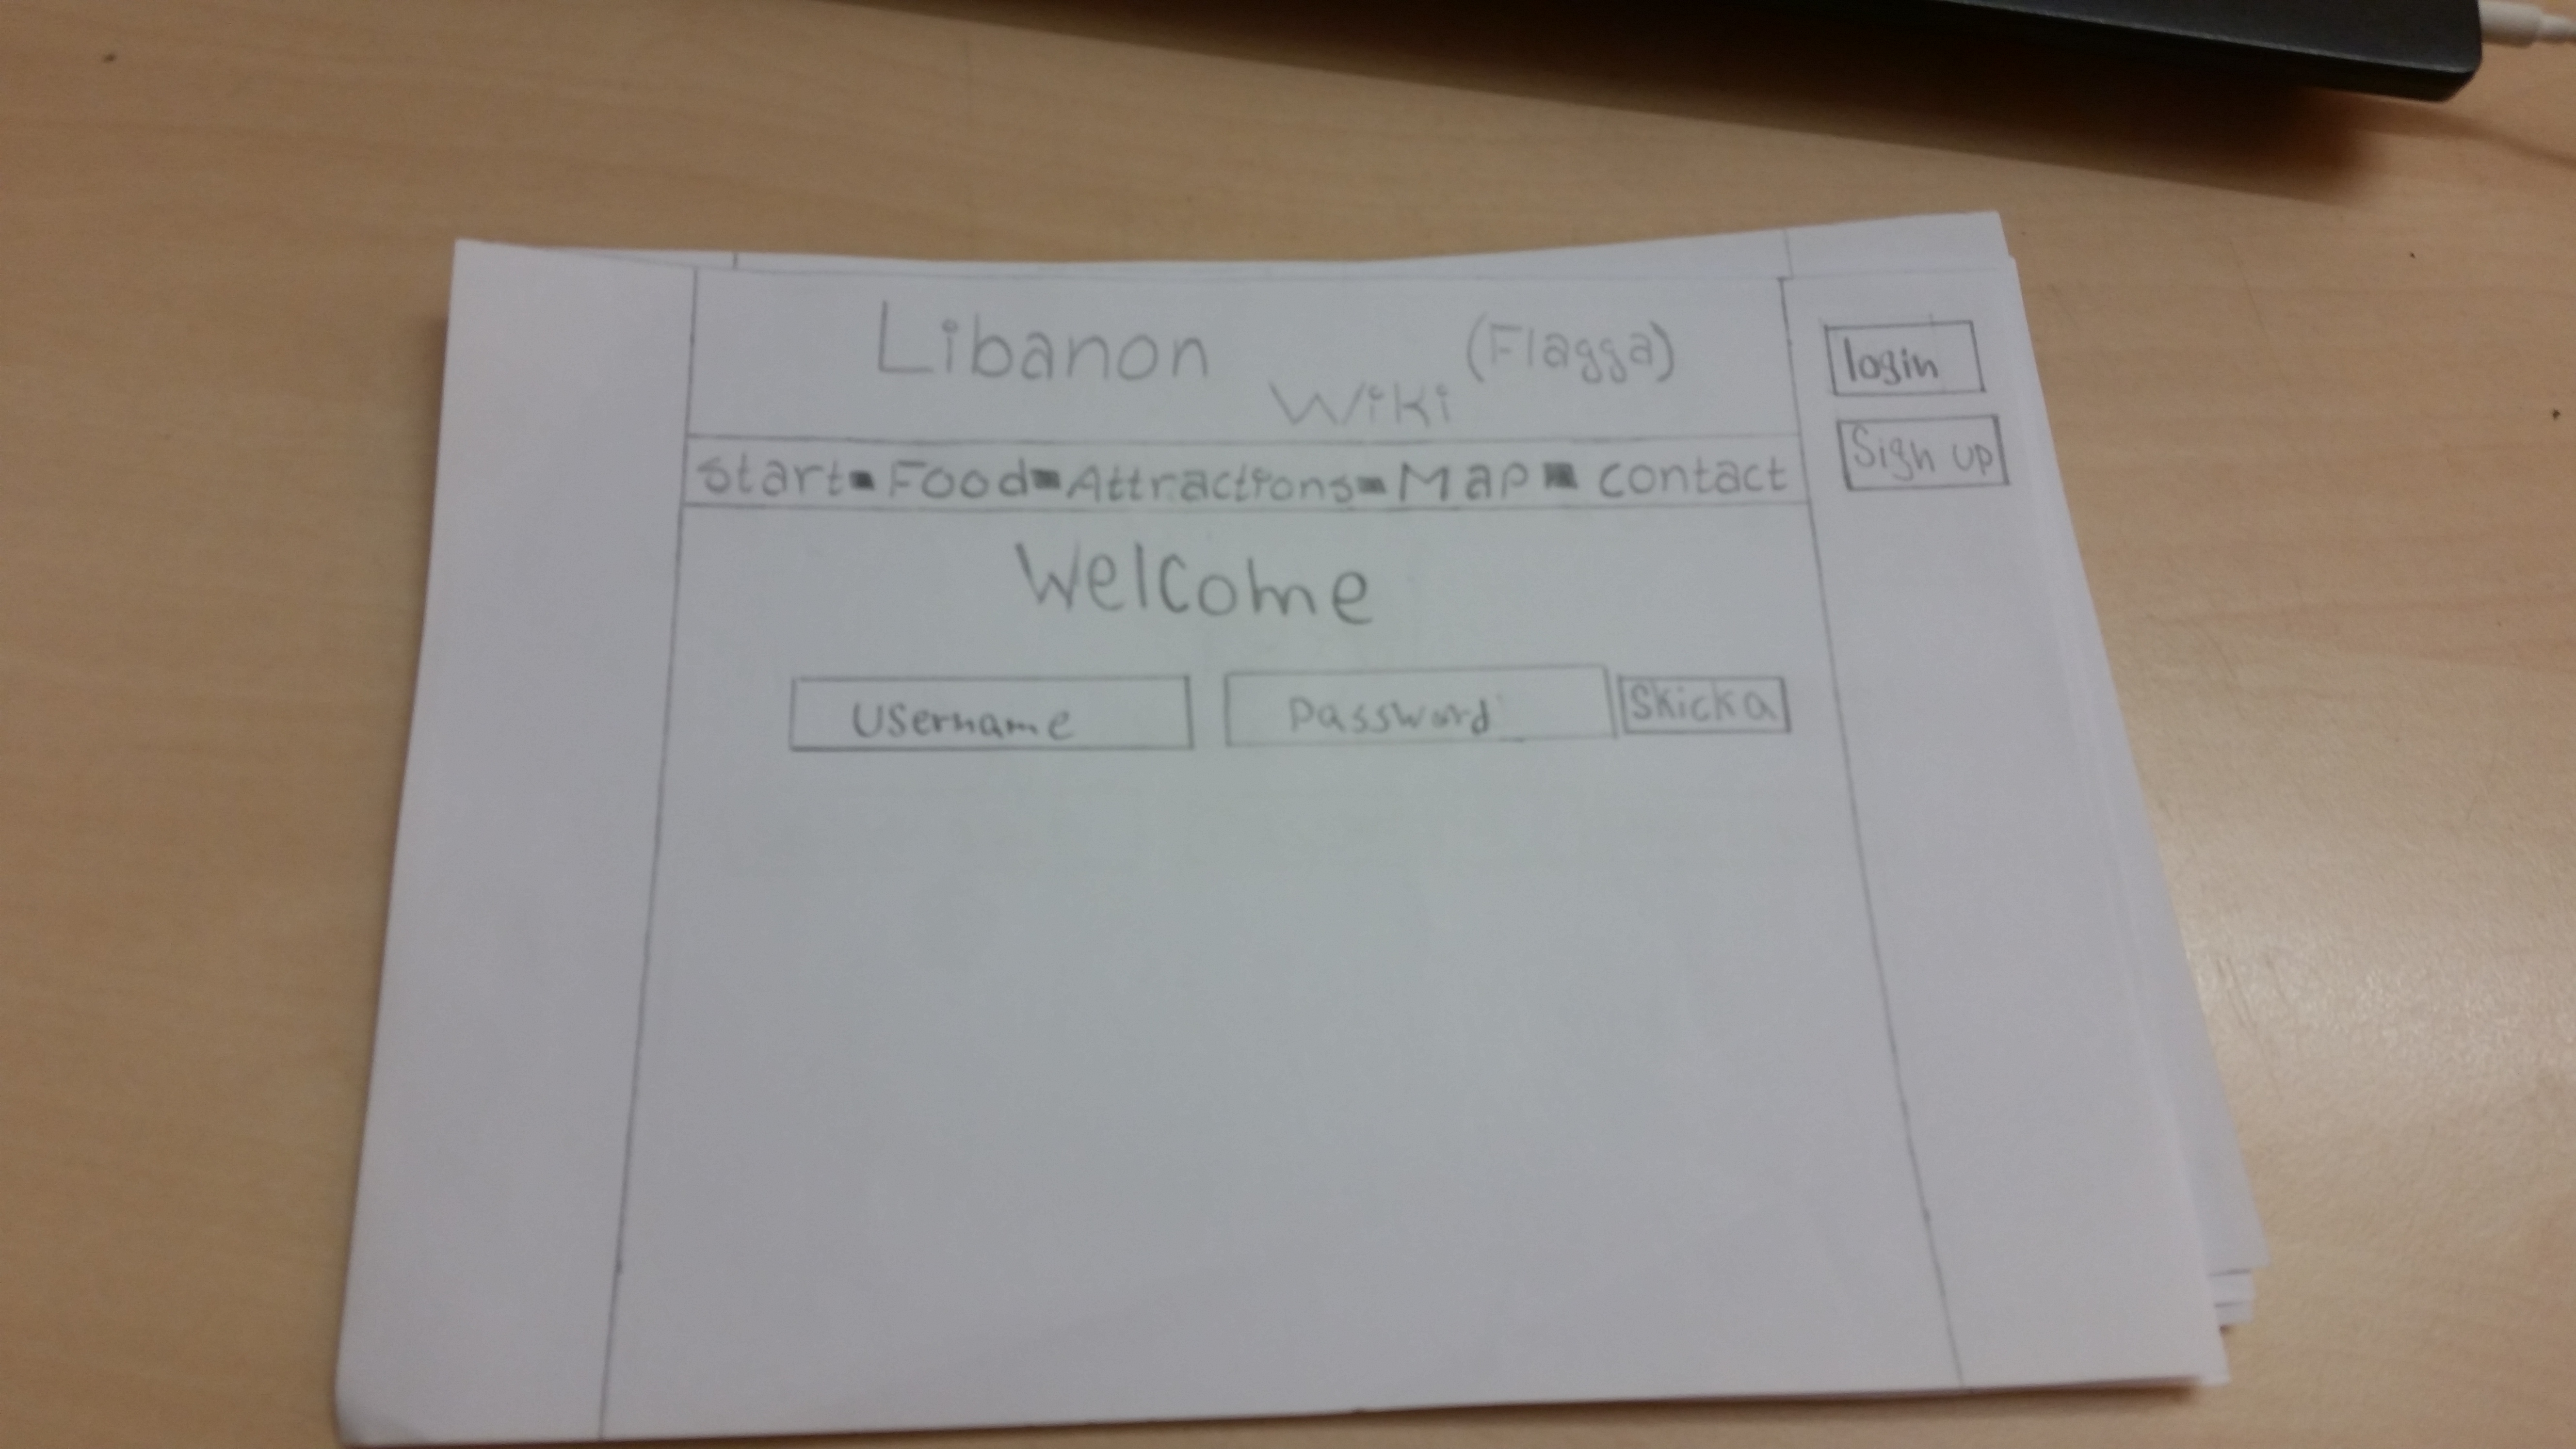 Libanon (Flagga)
Wiki
login
Sign up
Start-Food-Attractions-Map-contact
Welcome
Username password Skicka